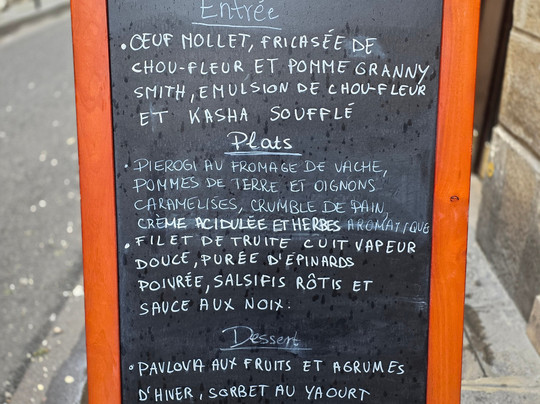 Entrée
• ŒUF MOLLET, FRICASÉE DE
CHOU-FLEUR ET POMME GRANNY
SMITH, EMULSION DE CHOU-FLEUR
ET KASHA SOUFFLÉ
Plats
• PIEROGI AU FROMAGE DE VACHE,
POMMES DE TERRE ET OIGNONS
CARAMELISES, CRUMBLE DE PAIN,
CRÈME ACIDULÉE ET HERBES AROMATIQUE
• FILET DE TRUITE CUIT VAPEUR
DOUCE, PURÉE D'EPINARDS
POIVRÉE, SALSIFIS RÔTIS ET
SAUCE AUX NOIX.
Dessert
• PAVLOVA AUX FRUITS ET AGRUMES
D'HIVER, SORBET AU YAOURT